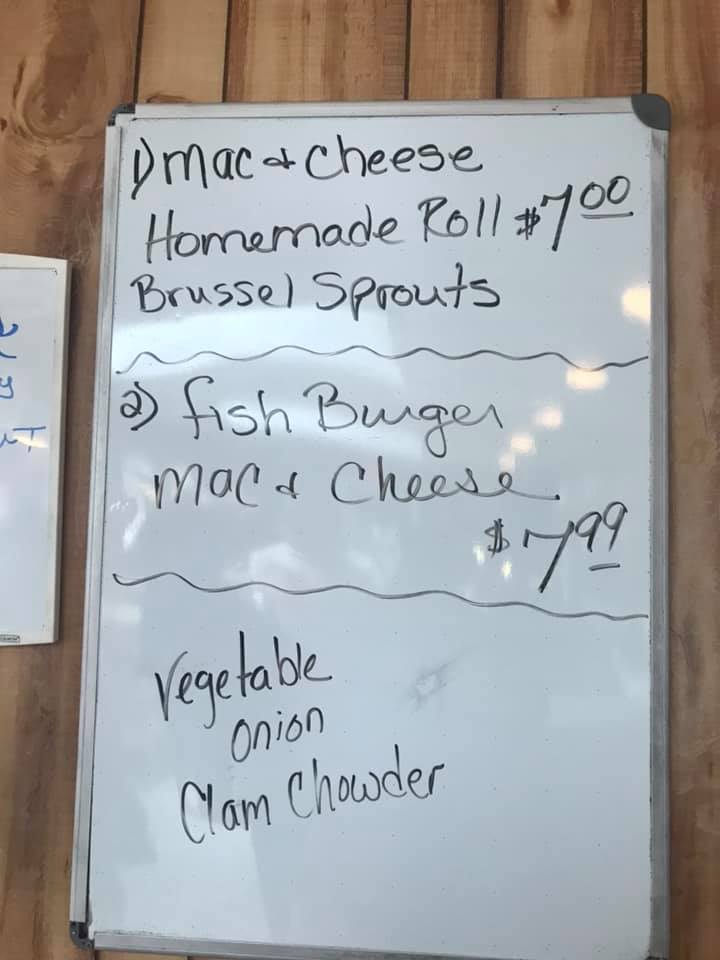 1) Mac & Cheese
Homemade Roll $7.00
Brussel Sprouts
2) fish Burger
Mac & Cheese
$7.99
Vegetable
onion
Clam Chowder